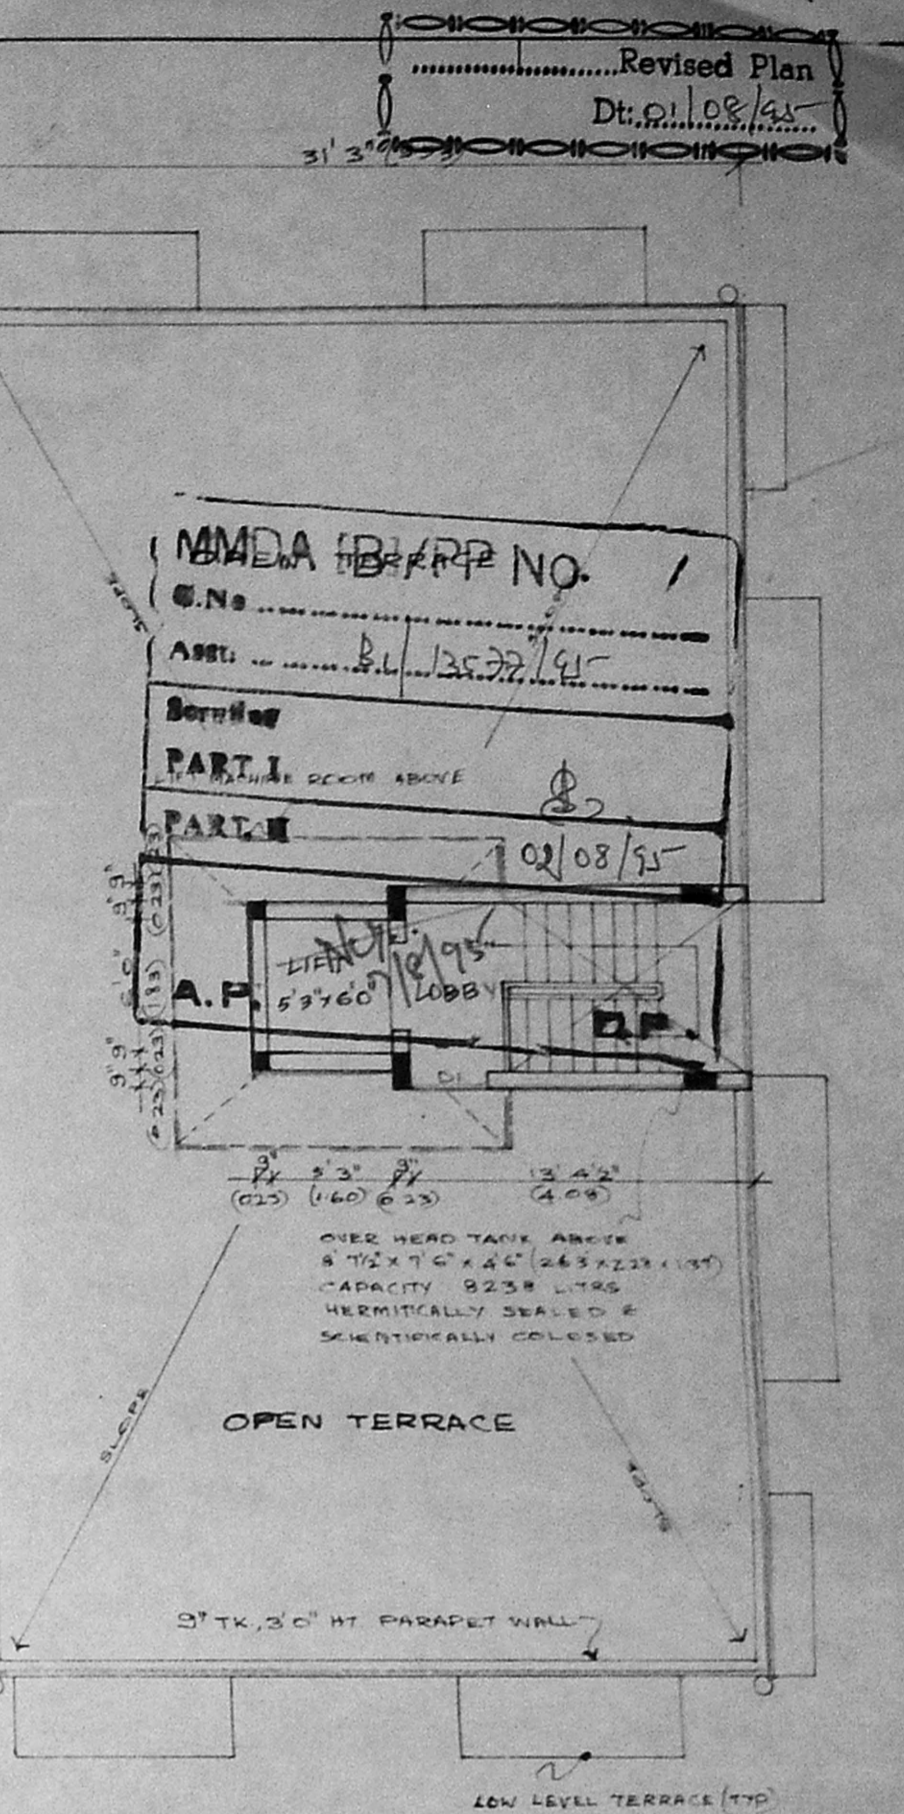 Revised Plan
Dt: 01/08/95
31' 3"
MMDA (B)/PP No.
OPEN TERRACE
C.No
Asst:
SLOPE
Scrutiny
PART I
LIFT MACHINE ROOM ABOVE
PART II
02/08/95
9"
(023)
6'0"
(183)
9"
(023)
LIFT
5'3"X6'0"
LOBBY
A.P.
D.P.
D1
9" 5'3" 9" 13' 4½"
(023) (1.60) (0 23) (4.08)
OVER HEAD TANK ABOVE
8' 7½" X 7' 6" X 4'6"
CAPACITY 8238 LITRS
HERMITICALLY SEALED &
SCIENTIFICALLY COLOSED
OPEN TERRACE
SLOPE
SLOPE
9" TK, 3'0" HT PARAPET WALL
LOW LEVEL TERRACE (TYP)